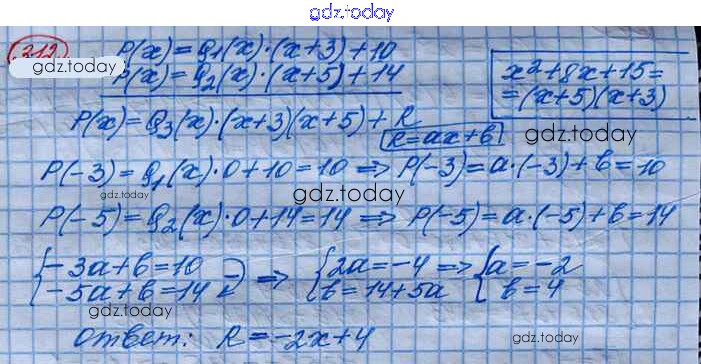 gdz.today
212
P(x) = Q₁(x)·(x+3)+10
gdz.today
P(x) = Q₂(x)·(x+5)+14
x²+8x+15=
=(x+5)(x+3)
P(x) = Q₃(x)·(x+3)(x+5)+R
R=ax+b
gdz.today
P(-3) = Q₁(x)·0+10=10 ⇒ P(-3)=a·(-3)+b=10
gdz.today
gdz.today
P(-5) = Q₂(x)·0+14=14 ⇒ P(-5)=a·(-5)+b=14
{-3a+b=10 ⇒ {2a=-4 ⇒ {a=-2
-5a+b=14 b=14+5a b=4
gdz.today
Ответ: R=-2x+4
gdz.today